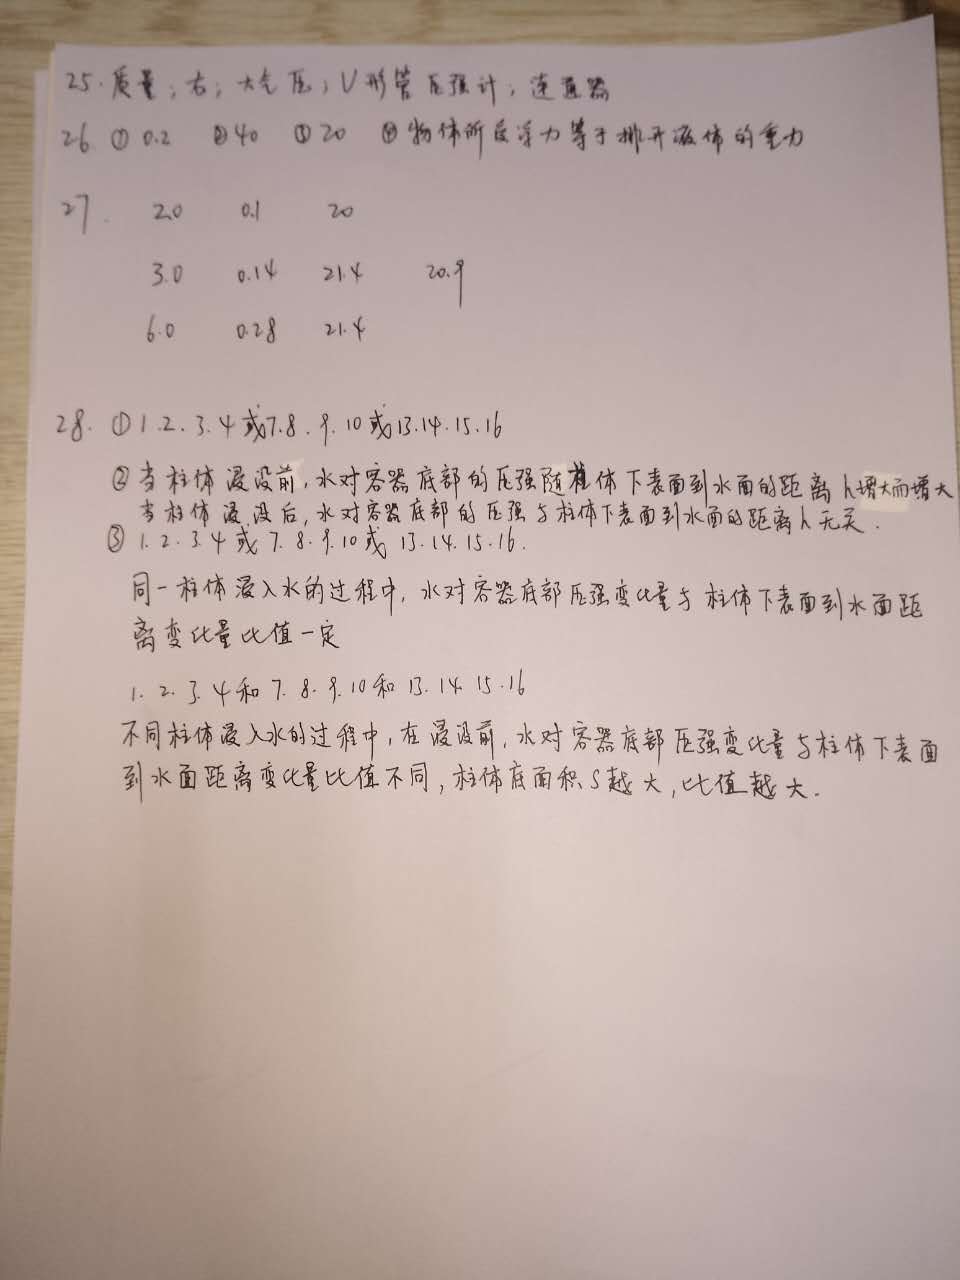 25. 质量；右；大气压；U形管压强计；连通器
26 ① 0.2 ② 40 ③ 20 ④ 物体所受浮力等于排开液体的重力
27. 2.0 0.1 20
3.0 0.14 21.4 20.9
6.0 0.28 21.4
28. ① 1.2.3.4或7.8.9.10或13.14.15.16
② 当柱体浸没前，水对容器底部的压强随柱体下表面到水面的距离h增大而增大
当柱体浸没后，水对容器底部的压强与柱体下表面到水面的距离h无关.
③ 1.2.3.4或7.8.9.10或13.14.15.16.
同一柱体浸入水的过程中，水对容器底部压强变化量与柱体下表面到水面距
离变化量比值一定
1.2.3.4和7.8.9.10和13.14.15.16
不同柱体浸入水的过程中，在浸没前，水对容器底部压强变化量与柱体下表面
到水面距离变化量比值不同，柱体底面积S越大，比值越大.